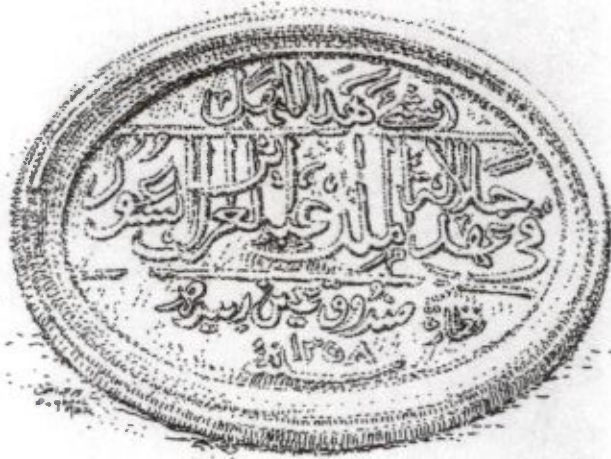 انشئ هذا السبيل
في عهد جلالة الملك عبد العزيز ابن السعود
نظارة صندوق عين زبيدة
سنة ١٣٥٨